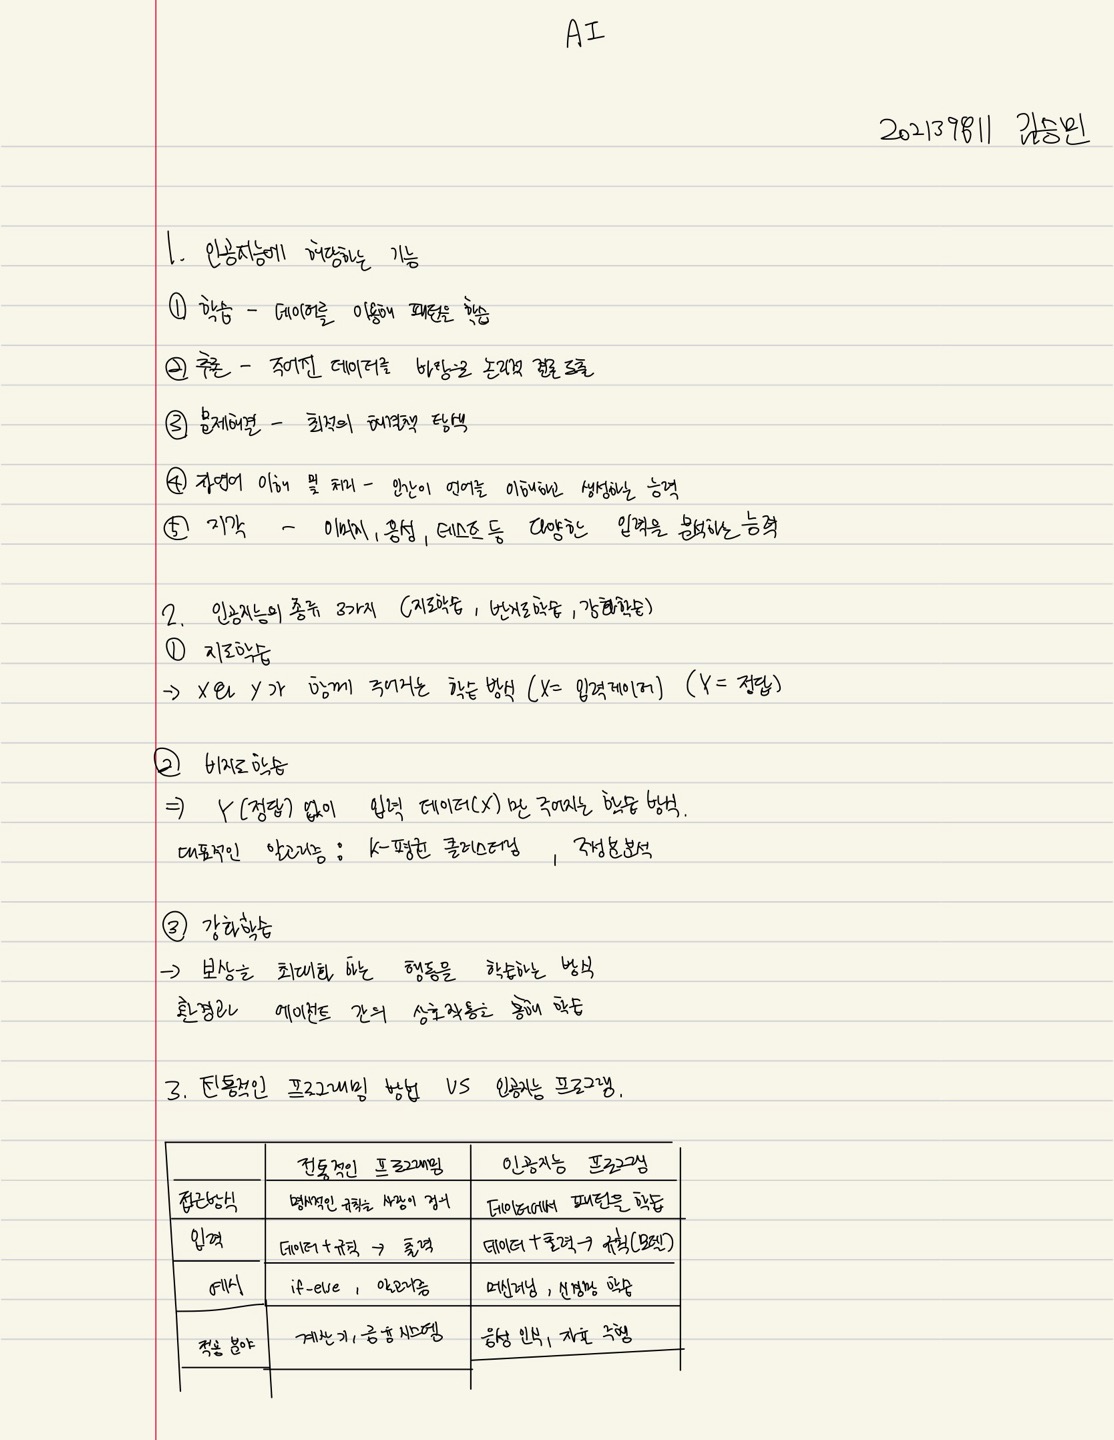 AI
202139811 김승민
1. 인공지능에 해당하는 기능
① 학습 - 데이터를 이용해 패턴을 학습
② 추론 - 주어진 데이터를 바탕으로 논리적 결론 도출
③ 문제해결 - 최적의 해결책 탐색
④ 자연어 이해 및 처리 - 인간이 언어를 이해하고 생성하는 능력
⑤ 지각 - 이미지, 음성, 테스트 등 다양한 입력을 분석하는 능력
2. 인공지능의 종류 3가지 (지도학습, 반지도학습, 강화학습)
① 지도학습
→ X와 Y가 함께 주어지는 학습 방식 (X= 입력데이터) (Y= 정답)
② 비지도학습
⇒ Y(정답) 없이 입력 데이터(X)만 주어지는 학습 방식.
대표적인 알고리즘 : K-평균 클러스터링 , 주성분분석
③ 강화학습
→ 보상을 최대화 하는 행동을 학습하는 방식
환경과 에이전트 간의 상호작용을 통해 학습
3. 전통적인 프로그래밍 방법 VS 인공지능 프로그램.
전통적인 프로그래밍 인공지능 프로그램
접근방식 명시적인 규칙을 사람이 정의 데이터에서 패턴을 학습
입력 데이터+규칙 → 출력 데이터+출력→ 규칙(모델)
예시 if-else , 알고리즘 머신러닝, 신경망 학습
적용 분야 계산기, 금융시스템 음성 인식, 자율 주행